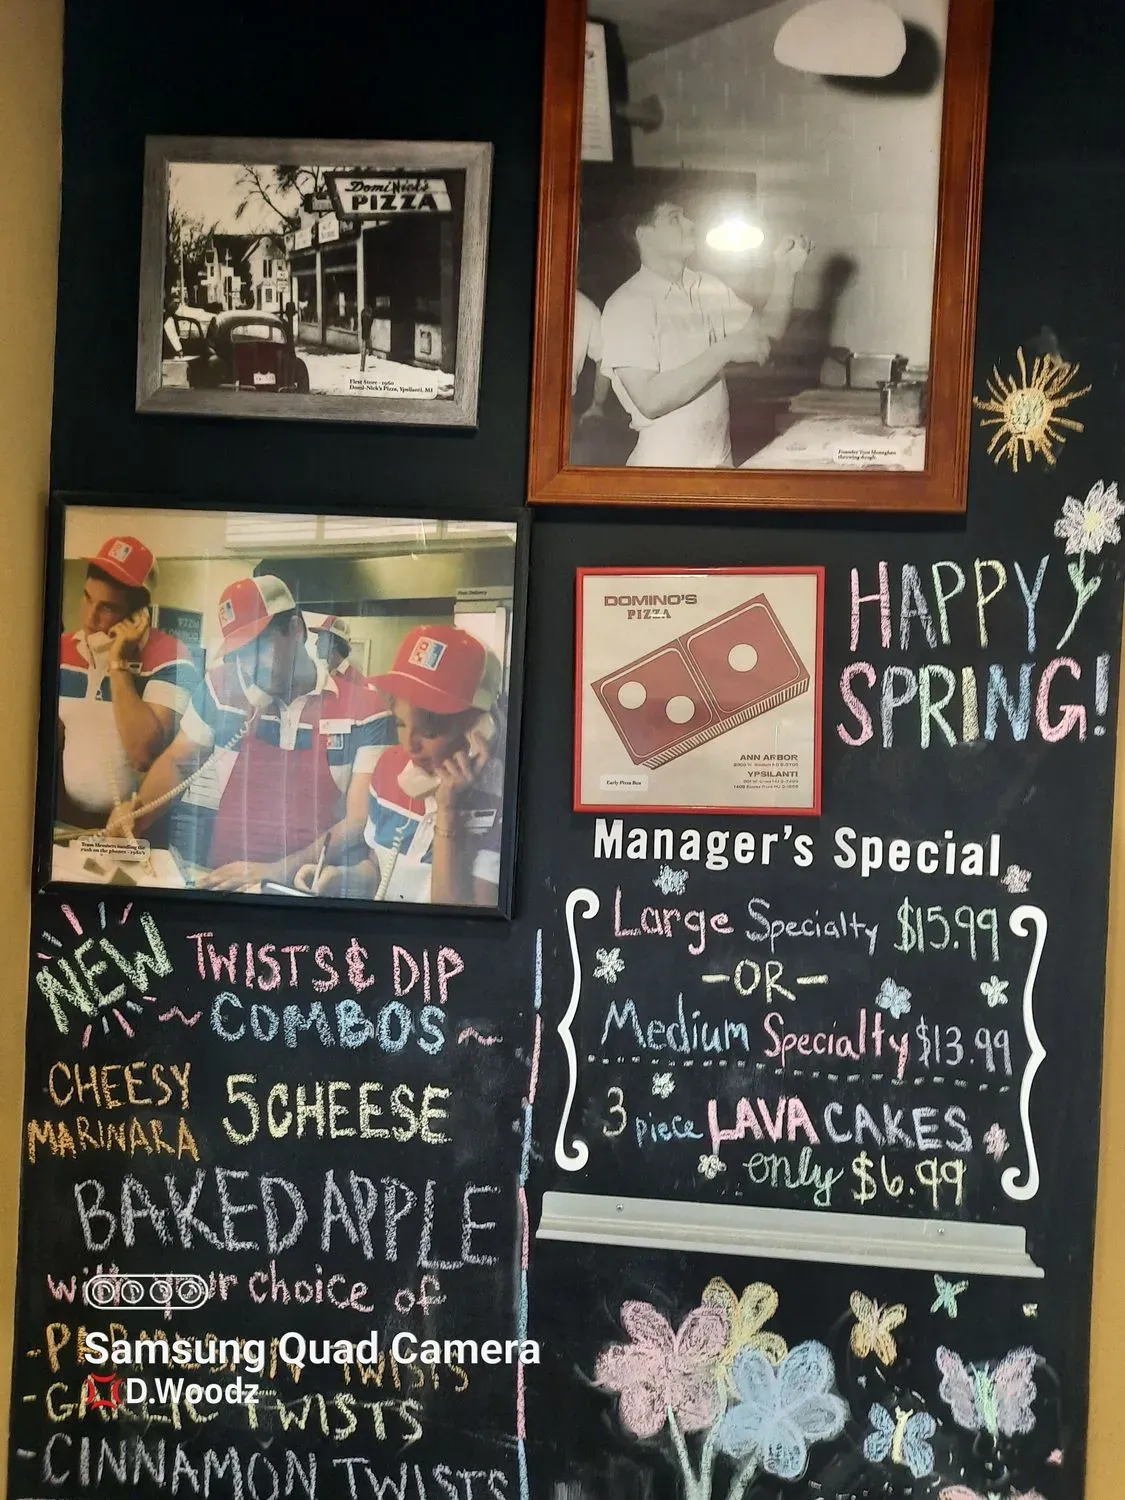 Domi-Nick's
PIZZA
First Store - 1960
Domi-Nick's Pizza, Ypsilanti, MI
Founder Tom Monaghan
throwing dough.
Team Members handling the
rush on the phones - 1980's
DOMINO'S
PIZZA
ANN ARBOR
YPSILANTI
Early Pizza Box
HAPPY
SPRING!
Manager's Special
Large Specialty $15.99
-OR-
Medium Specialty $13.99
3 piece LAVA CAKES
only $6.99
NEW TWISTS & DIP
~ COMBOS ~
CHEESY
MARINARA
5 CHEESE
BAKED APPLE
with your choice of
- PARMESAN TWISTS
- GARLIC TWISTS
- CINNAMON TWISTS
Samsung Quad Camera
D.Woodz